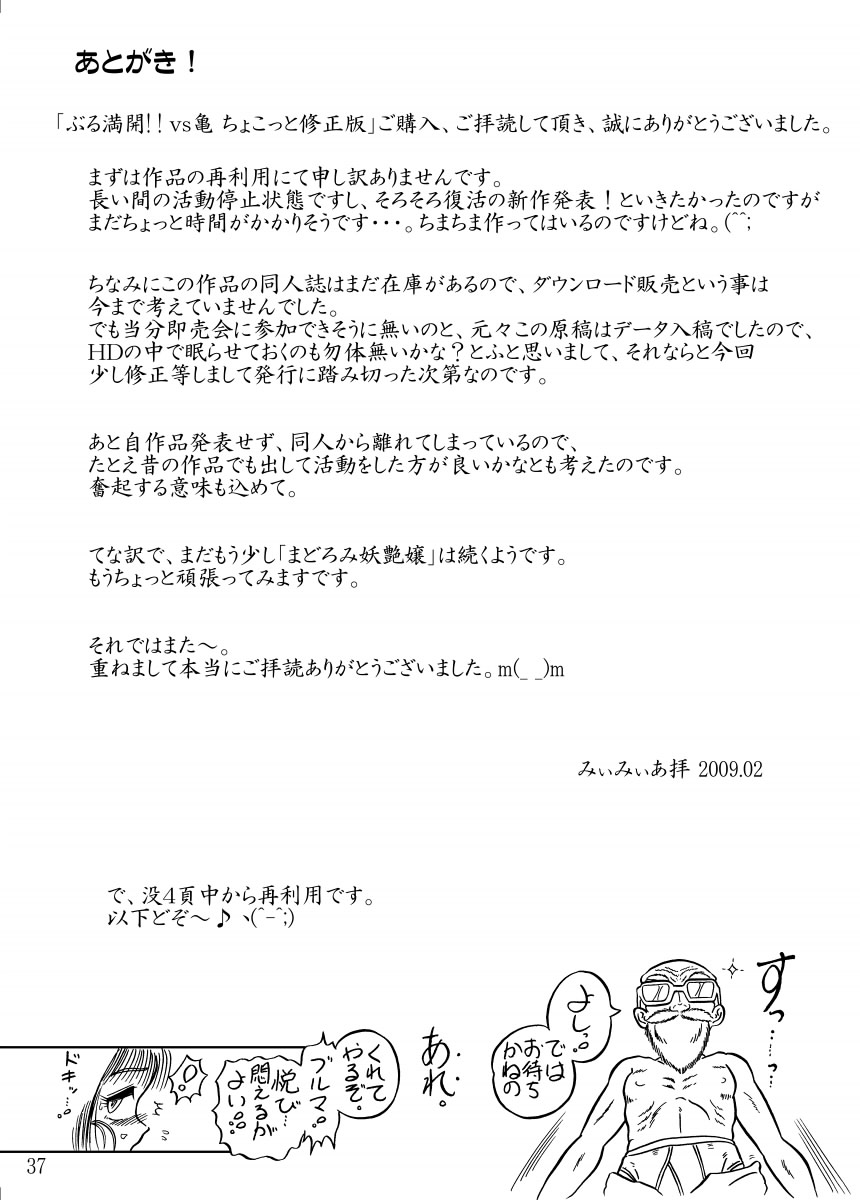 あとがき！
「ぶる満開!！vs亀 ちょこっと修正版」ご購入、ご拝読して頂き、誠にありがとうございました。
まずは作品の再利用にて申し訳ありませんです。
長い間の活動停止状態ですし、そろそろ復活の新作発表！といきたかったのですが
まだちょっと時間がかかりそうです・・・。ちまちま作ってはいるのですけどね。(^^;
ちなみにこの作品の同人誌はまだ在庫があるので、ダウンロード販売という事は
今まで考えていませんでした。
でも当分即売会に参加できそうに無いのと、元々この原稿はデータ入稿でしたので、
HDの中で眠らせておくのも勿体無いかな？とふと思いまして、それならと今回
少し修正等しまして発行に踏み切った次第なのです。
あと自作品発表せず、同人から離れてしまっているので、
たとえ昔の作品でも出して活動をした方が良いかなとも考えたのです。
奮起する意味も込めて。
てな訳で、まだもう少し「まどろみ妖艶嬢」は続くようです。
もうちょっと頑張ってみますです。
それではまた～。
重ねまして本当にご拝読ありがとうございました。m(_ _)m
みぃみぃあ拝 2009.02
で、没４頁中から再利用です。
以下どぞ～♪ヽ(^-^;)
すっ……っ
よしっ
では
お待ち
かねの
あれ。
くれて
やるぞ。
ブルマ。
悦び…
悶えるが
よい。
！。
ドキッ…
37